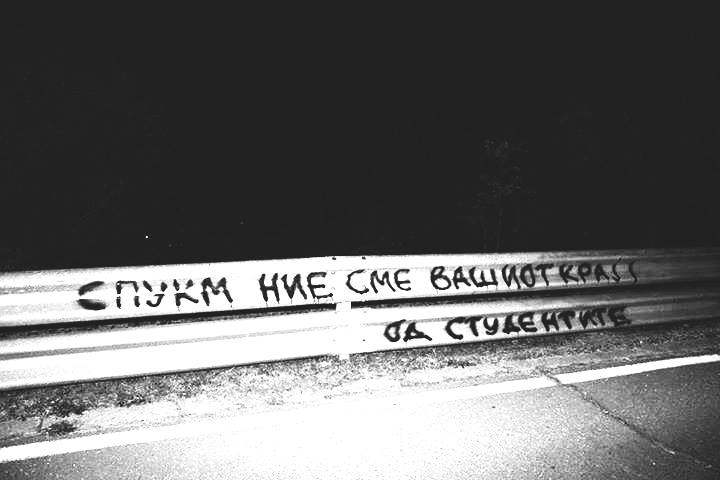 СПУКМ НИЕ СМЕ ВАШИОТ КРАЈ
ОД СТУДЕНТИТЕ